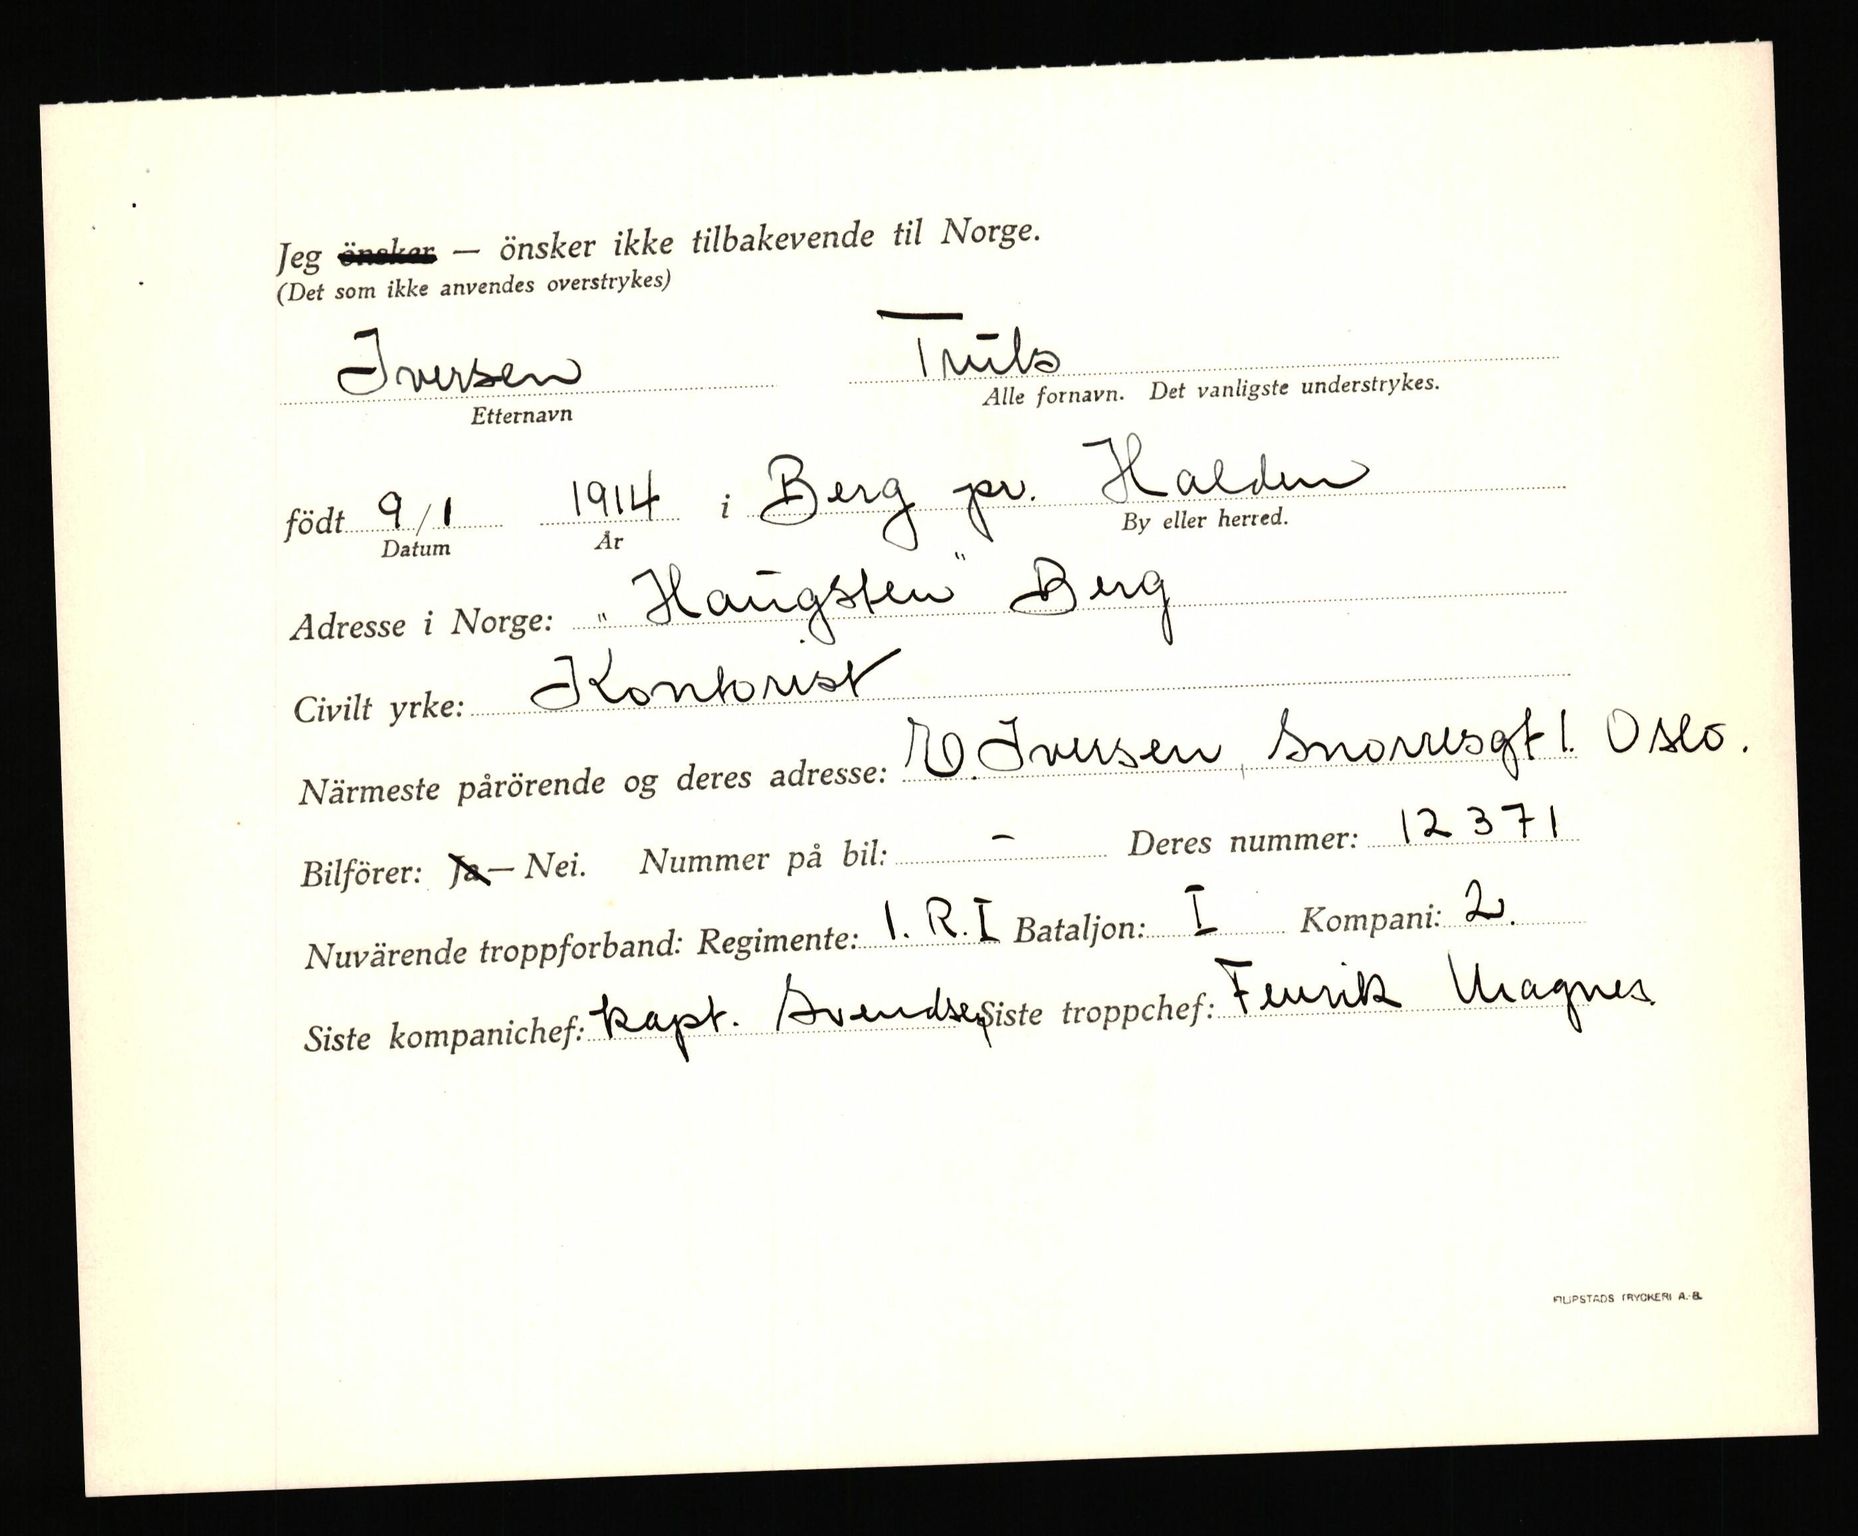 Jeg önsker — önsker ikke tilbakevende til Norge.
(Det som ikke anvendes overstrykes)
Iversen Truls
Etternavn Alle fornavn. Det vanligste understrykes.
födt 9/1 1914 i Berg pr. Halden
Datum År By eller herred.
Adresse i Norge: "Haugsten" Berg
Civilt yrke: Kontorist
Närmeste pårörende og deres adresse: Iversen, Snorresgt 1. Oslo.
Bilförer: Ja — Nei. Nummer på bil: - Deres nummer: 12371
Nuvärende troppforband: Regimente: 1. R.I Bataljon: I Kompani: 2.
Siste kompanichef: kapt. Svendsen Siste troppchef: Fenrik Magnes
FILIPSTADS TRYCKERI A.-B.